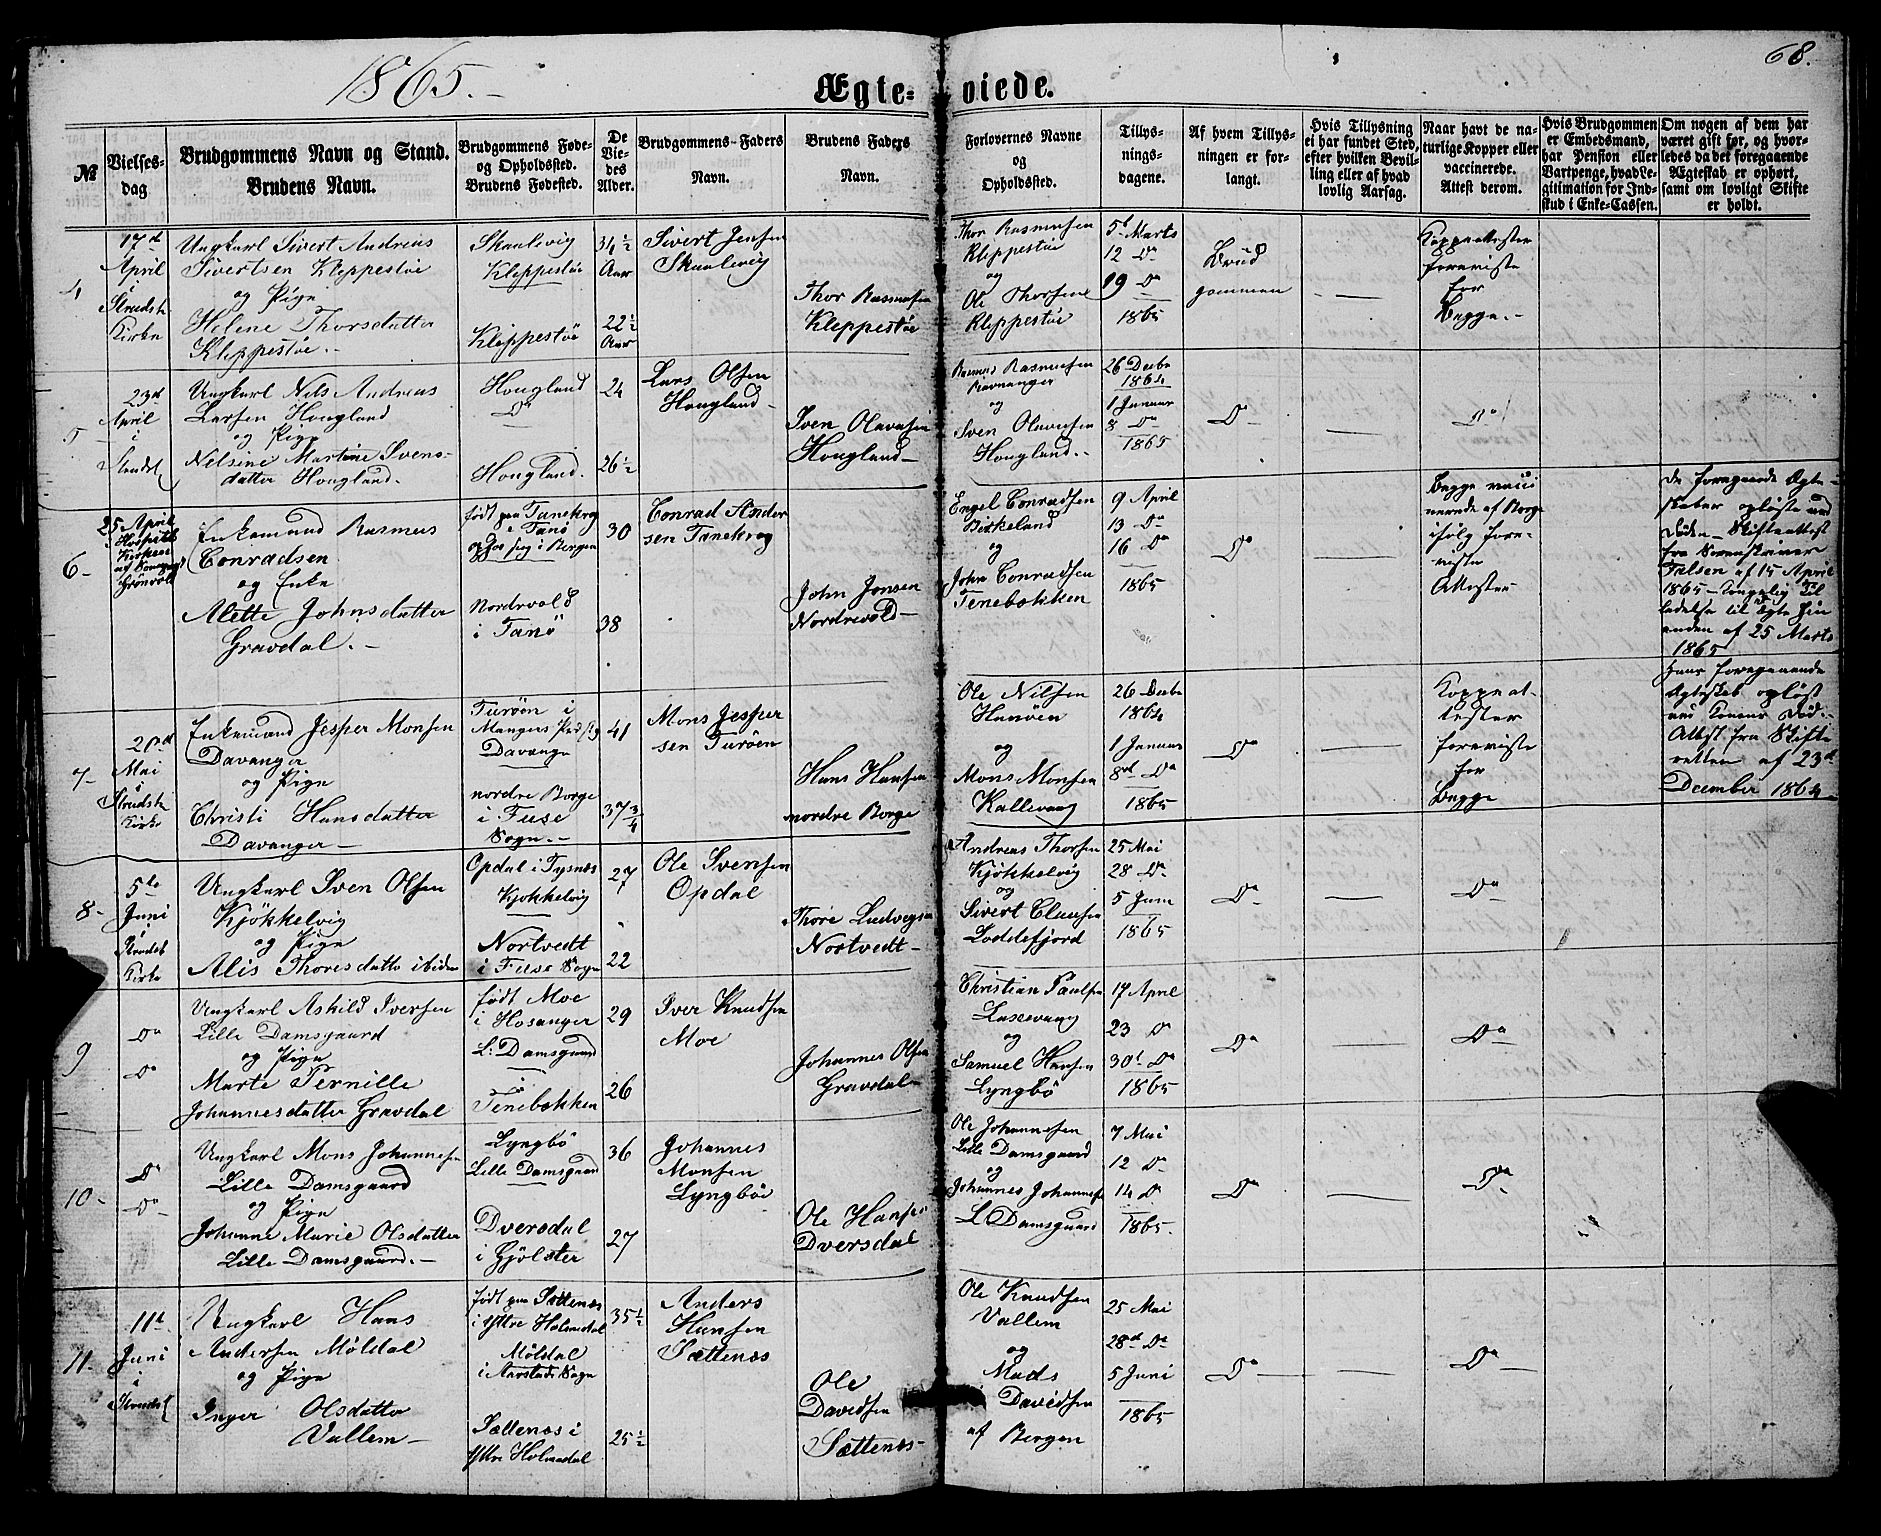 1865.-
68.
Ægte- viede.
№
Vielses-
dag
Brudgommens Navn og Stand.
Brudens Navn.
Brudgommens Føde-
og Opholdssted.
Brudens Fødested.
De
Vie-
des
Alder.
Brudgommens Faders
Navn.
Brudens Faders
Navn.
Forlovernes Navne
og
Opholdssted.
Tillys-
nings-
dagene.
Af hvem Tillys-
ningen er for-
langt.
Hvis Tillysning
ei har fundet Sted,
efter hvilken Bevil-
ling eller af hvad
lovlig Aarsag.
Naar havt de na-
turlige Kopper eller
vaccinerede.
Attest derom.
Hvis Brudgommen
er Embedsmand,
har Pension eller
Vartpenge, hvad Le-
gitimation for Ind-
skud i Enke-Cassen.
Om nogen af dem har
været gift før, og hvor-
ledes da det foregaaende
Ægteskab er ophørt,
samt om lovligt Skifte
er holdt.
4
17d
April
i
Kirke
Ungkarl Sivert Andreas
Sivertsen Kleppestøe
og Pige
Helene Thorsdatter
Kleppestøe.-
Skaalevig
Kleppestøe
Kleppestöe
34½
Aar
22½
Aar
Sivert Jensen
Skaalevig
Thor Rasmusen
Kleppestöe
Thor Rasmusen
Kleppestöe
og
Ole Thorsen
Kleppestöe
5t Marts
12 Do
19 Do
1865
Brud
gommen
Koppeattester
foreviste
for
Begge.-
5
23d
April
i
Ungkarl Nils Andreas
Larsen Hougland
og Pige
Nelsine Martine Svens-
datter Hougland.
Hougland
Do
Hougland.
24
26½
Lars Olsen
Hougland
Sven Olausen
Hougland-
Rasmus Rasmusen
Ravnanger
og
Sven Olausen
Hougland.-
26 Decbr
1864
1 Januar
8 Do
1865
Do
Do
6-
25 April
Enkemand Rasmus
Conradsen
og Enke
Alette Johnsdatter
Gravdal.-
født paa Tanekrog
i Fanø
Nordvold
i Fanö
30
38
Conrad Ander
sen Tanekrog
John Jonsen
Nordrevold-
Engel Conradsen
Birkeland
og
John Conradsen
Tenebekken
9 April
13 Do
16 Do
1865
Do
Begge vacci
nerede af Borge
ifølg fore-
viste
Attester
De foregaaende Ægte-
skaber opløste ved
Døden- Skifteattest
fra Sorenskriver
Falsen af 15 April
1865- Kongelig Til
ladelse til at Ægte hin
anden af 25 Marts
1865
7-
Mai
i
Kirke
Enkemand Jesper Monsen
Davanger
og Pige
Christi Hansdatter
Davanger-
Turöen i
Mangers Præstg
Davanger
nordre Borge
i Fuse
Sogn.-
41
37¾
Mons Jesper
sen Turöen
Hans Hansen
nordre Borge
Ole Nilsen
Hanöen
og
Mons Monsen
Kallevaag
26 Decbr
1864
1 Januar
8d Do
1865
Do
Koppeat-
tester
foreviste
for
Begge
Hans foregaaende
Ægteskab opløst
ved Konens Död.-
Attest fra Skifte
retten af 23d
December 1864-
8-
5te
Juni
i
Kirke
Ungkarl Sven Olsen
Kjökkelvig
og Pige
Alis Thoresdatter ibidem
Opdal i Tysnæs
Kjøkkelvig
Nortvedt
i Fuse Sogn
27
22
Ole Svensen
Opdal
Thore Ludvigsen
Nortvedt-
Andreas Thorsen
Kjökkelvig
og
Sivert Clausen
Loddefjord
25 Mai
28 Do
5 Juni
1865
Do
Do
9
Do
Do
Ungkarl Askild Iversen
Lille Damsgaard
og Pige
Marte Pernille
Johannesdatter Gravdal
født Moe
i Hosanger
L: Damsgaard
Tenebekken
29
26
Iver Knudsen
Moe
Johannes Olsen
Gravdal
Christian Paulsen
Laxevaag
og
Samuel Hansen
Lyngbö
17 April
23 Do
30t Do
1865
Do
Do
10-
Do
Do
Ungkarl Mons Johannesen
Lille Damsgaard
og Pige
Johanne Marie Olsdatter
Lille Damsgaard.-
Lyngbö
Lille Damsgaard
Dversdal
i Gjölster
36
27
Johannes
Monsen
Lyngböe
Ole Hansen
Dversdal
Ole Johannesen
Lille Damsgaard
og
Johannes Johannesen
L Damsgaard
7 Mai
12 Do
14 Do
1865.
Do
Do
11-
11t
Juni
i
Ungkarl Hans
Andersen Möldal
og Pige
Inger Olsdatter
Vallem-
født paa Sættenæs
i Yttre Holmedal
Möldal
i Aarstad Sogn
Sættenæs i
Yttre Holmedal
35½
25½
Anders
Hansen
Sættenæs
Ole
Davidsen
Sættenæs-
Ole Knudsen
Vallem
og
Mads
Davidsen
af Bergen
25 Mai
28d Do
5 Juni
1865
Do
Do